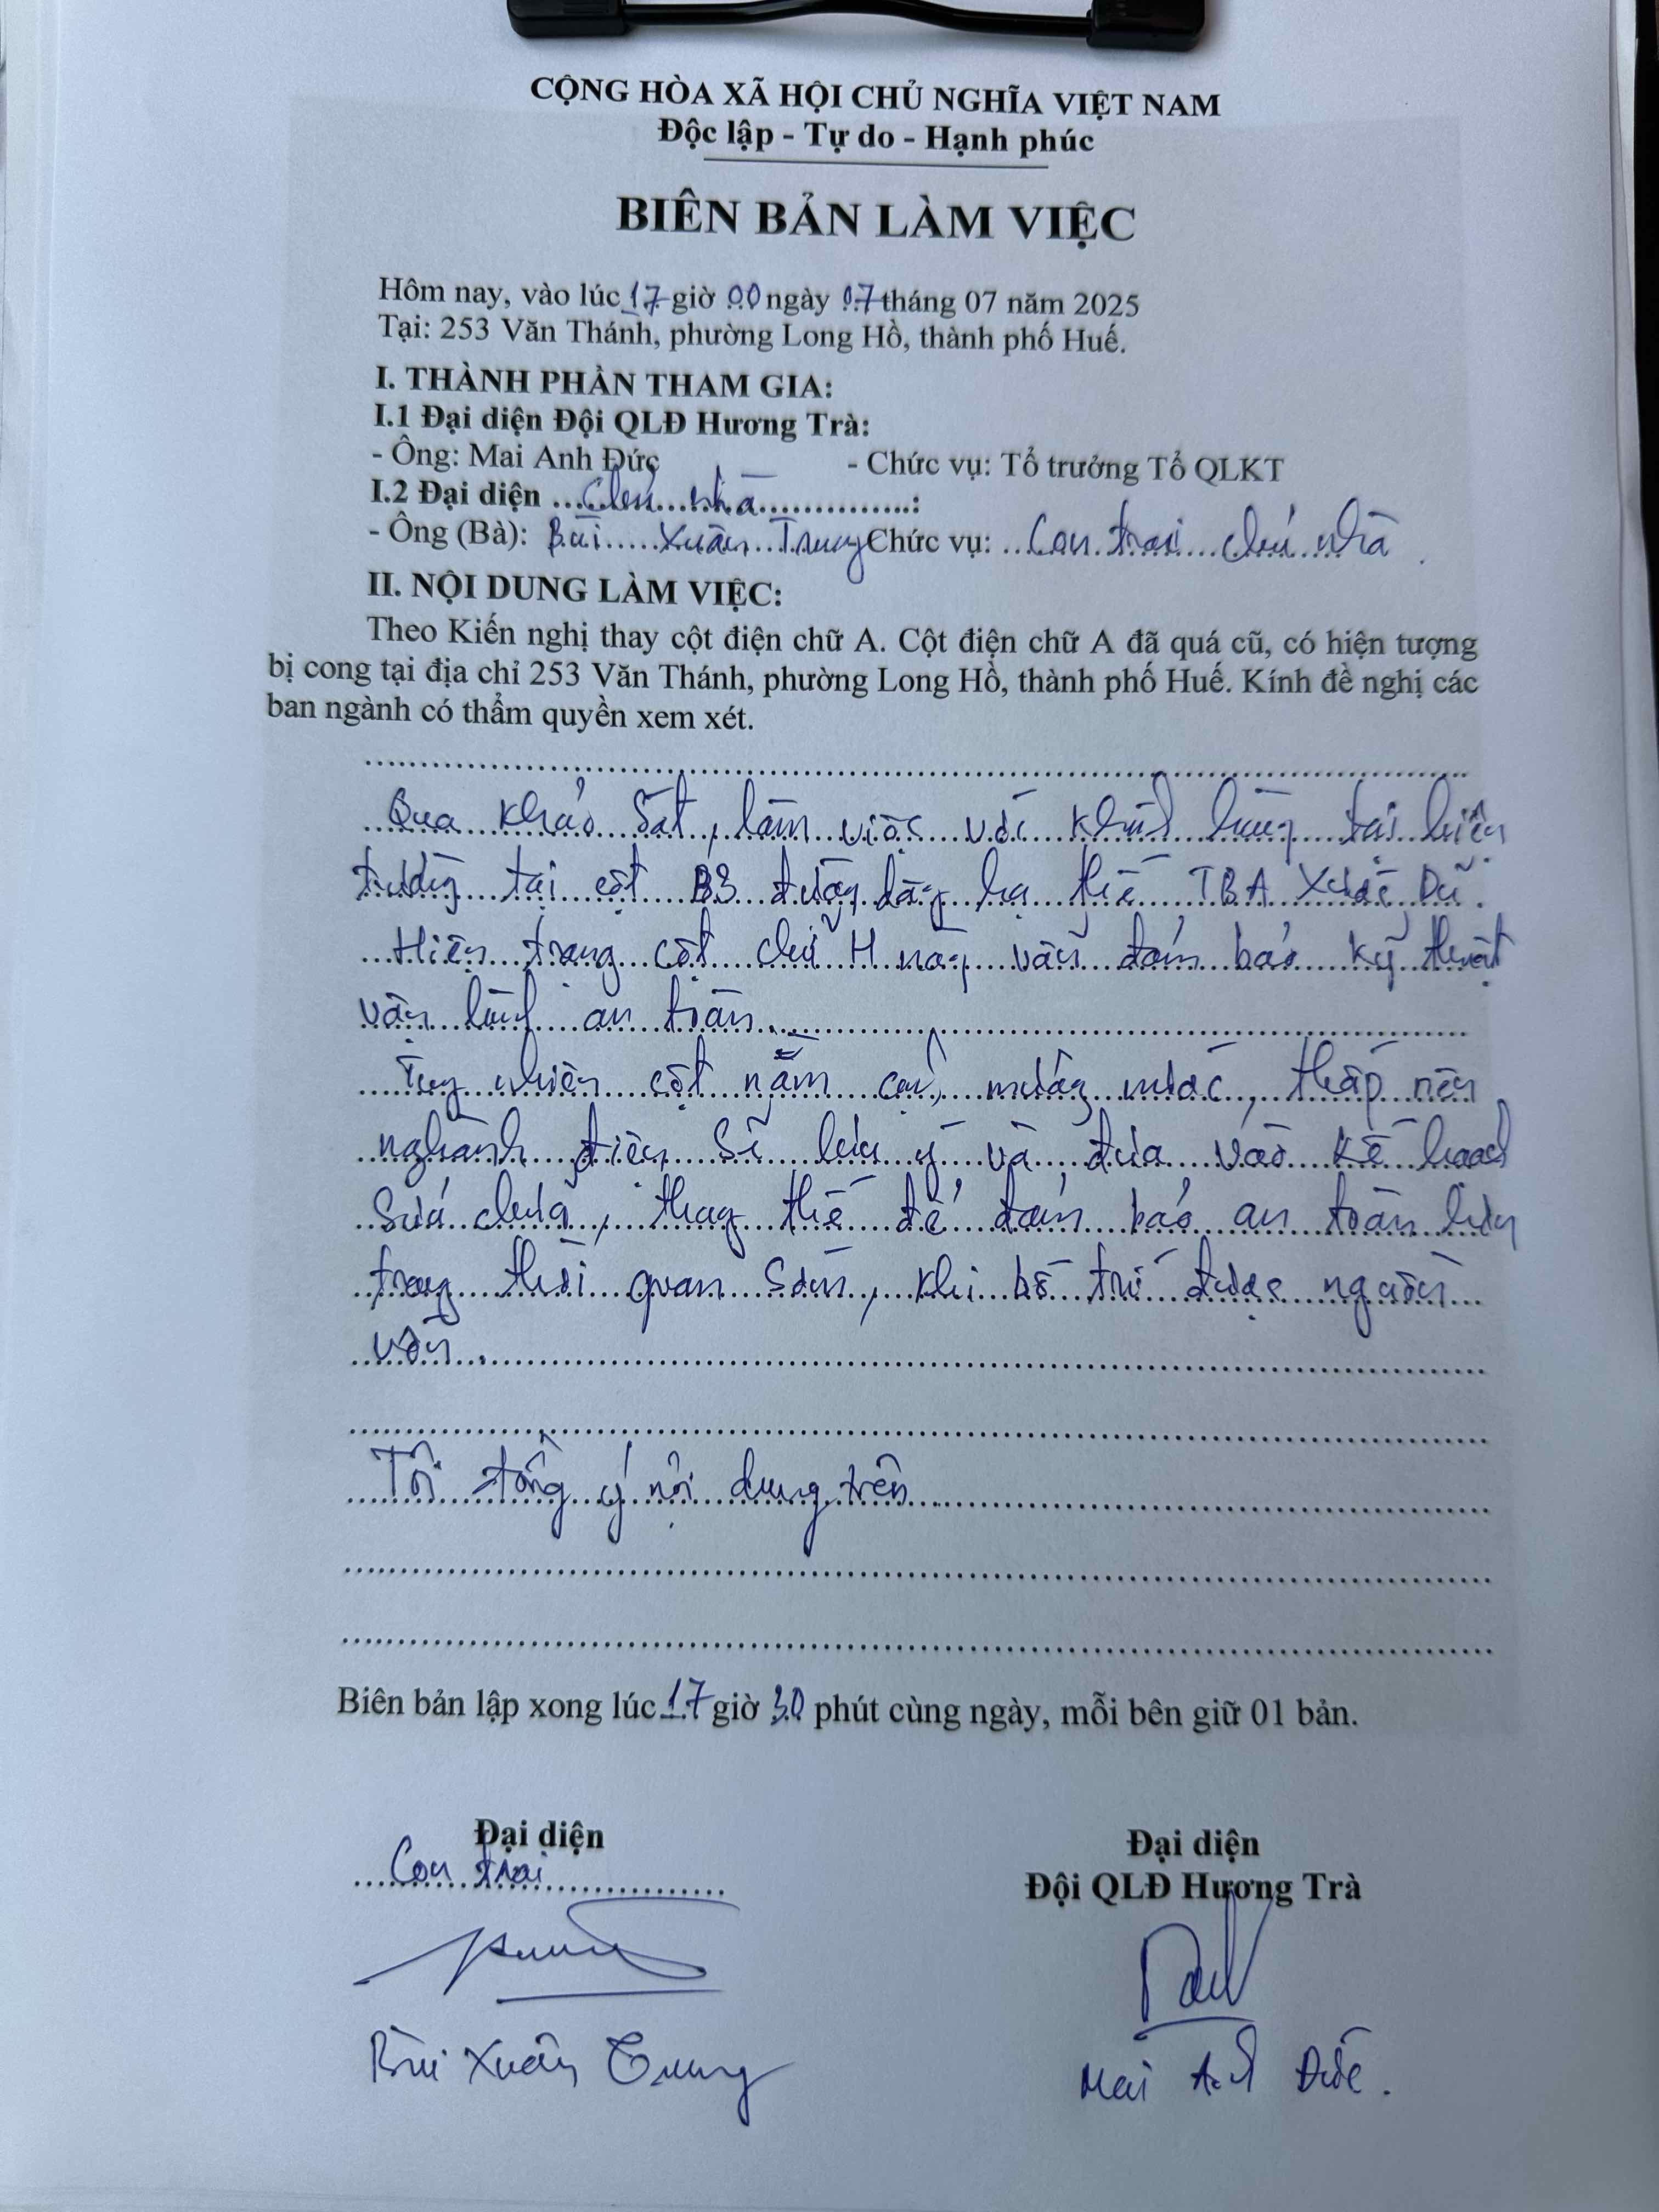 CỘNG HÒA XÃ HỘI CHỦ NGHĨA VIỆT NAM
Độc lập - Tự do - Hạnh phúc
BIÊN BẢN LÀM VIỆC
Hôm nay, vào lúc 17 giờ 00 ngày 07 tháng 07 năm 2025
Tại: 253 Văn Thánh, phường Long Hồ, thành phố Huế.
I. THÀNH PHẦN THAM GIA:
I.1 Đại diện Đội QLĐ Hương Trà:
- Ông: Mai Anh Đức - Chức vụ: Tổ trưởng Tổ QLKT
I.2 Đại diện ...Chủ nhà...:
- Ông (Bà): Bùi Xuân Trung Chức vụ: Con trai chủ nhà.
II. NỘI DUNG LÀM VIỆC:
Theo Kiến nghị thay cột điện chữ A. Cột điện chữ A đã quá cũ, có hiện tượng
bị cong tại địa chỉ 253 Văn Thánh, phường Long Hồ, thành phố Huế. Kính đề nghị các
ban ngành có thẩm quyền xem xét.
Qua khảo sát, làm việc với khách hàng tại hiện
trường tại cột B3 đường dây hạ thế TBA Xước Dũ.
Hiện trạng cột chữ H này vẫn đảm bảo kỹ thuật
vận hành an toàn.
Tuy nhiên cột nằm cạnh mương nước, thấp nên
nghành điện sẽ lưu ý và đưa vào kế hoạch
sửa chữa, thay thế để đảm bảo an toàn hơn
trong thời quan sớm, khi bố trí được nguồn
vốn.
Tôi đồng ý nội dung trên
Biên bản lập xong lúc 17 giờ 30 phút cùng ngày, mỗi bên giữ 01 bản.
Đại diện
Con trai
Bùi Xuân Trung
Đại diện
Đội QLĐ Hương Trà
Mai Anh Đức.